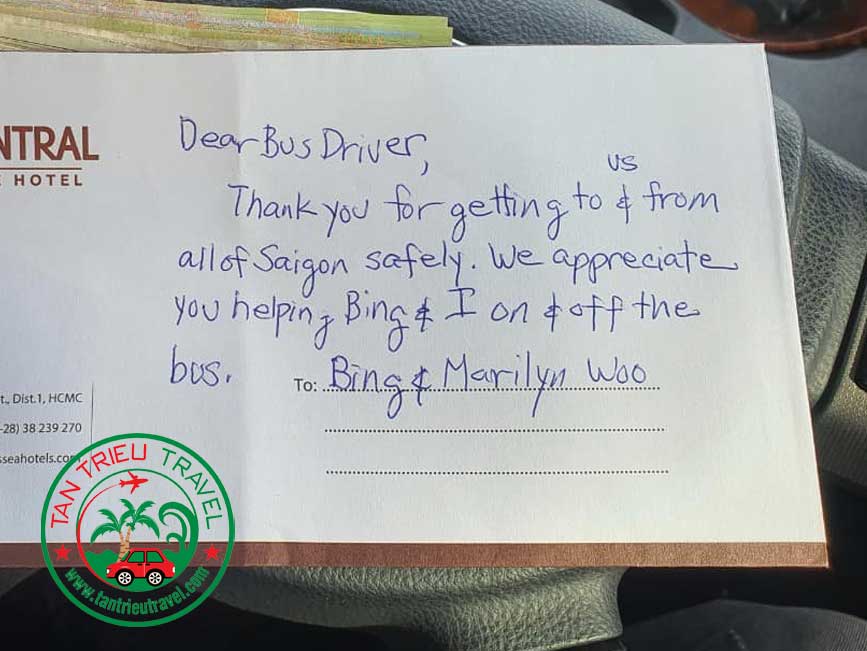 NTRAL
HOTEL
Dear Bus Driver,
us
Thank you for getting to & from
all of Saigon safely. We appreciate
you helping Bing & I on & off the
bus.
To: Bing & Marilyn Woo
t., Dist.1, HCMC
-28) 38 239 270
sseahotels.com
TAN TRIEU TRAVEL
www.tantrieutravel.com